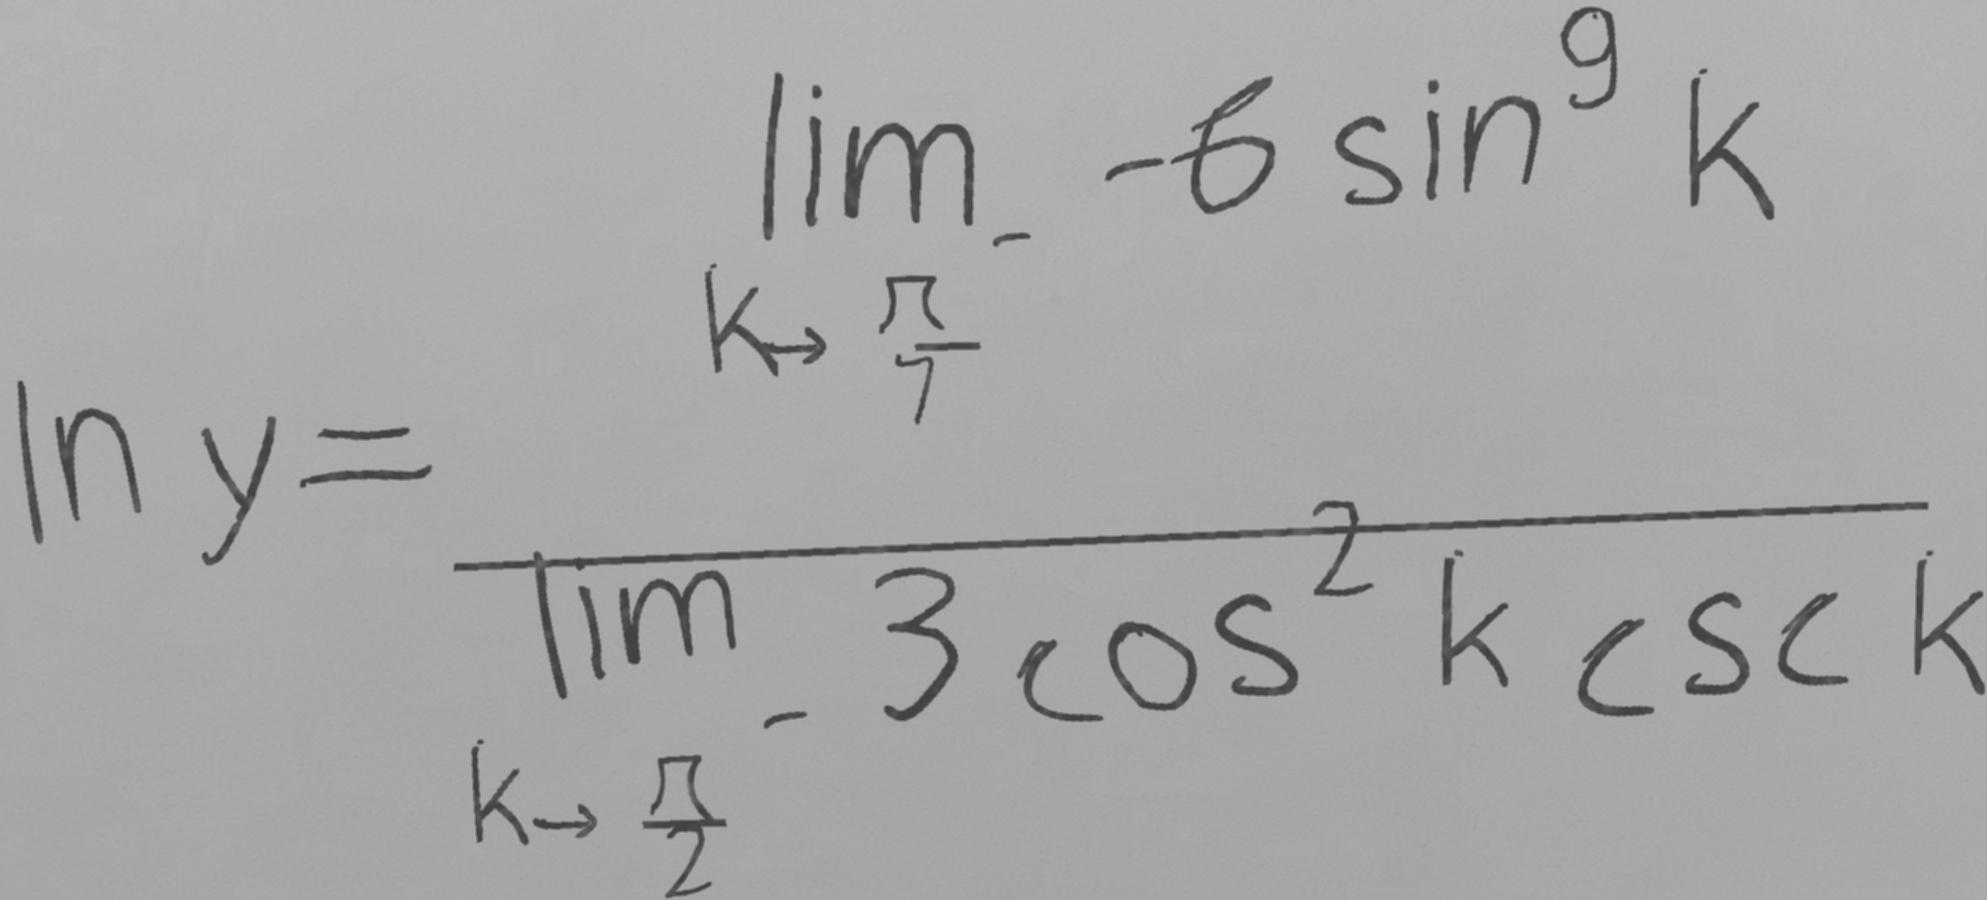 \ln y = \frac{\lim_{k \to \frac{\pi}{7}^{-}} -6 \sin^{9} k}{\lim_{k \to \frac{\pi}{2}^{-}} 3 \cos^{2} k \csc k}